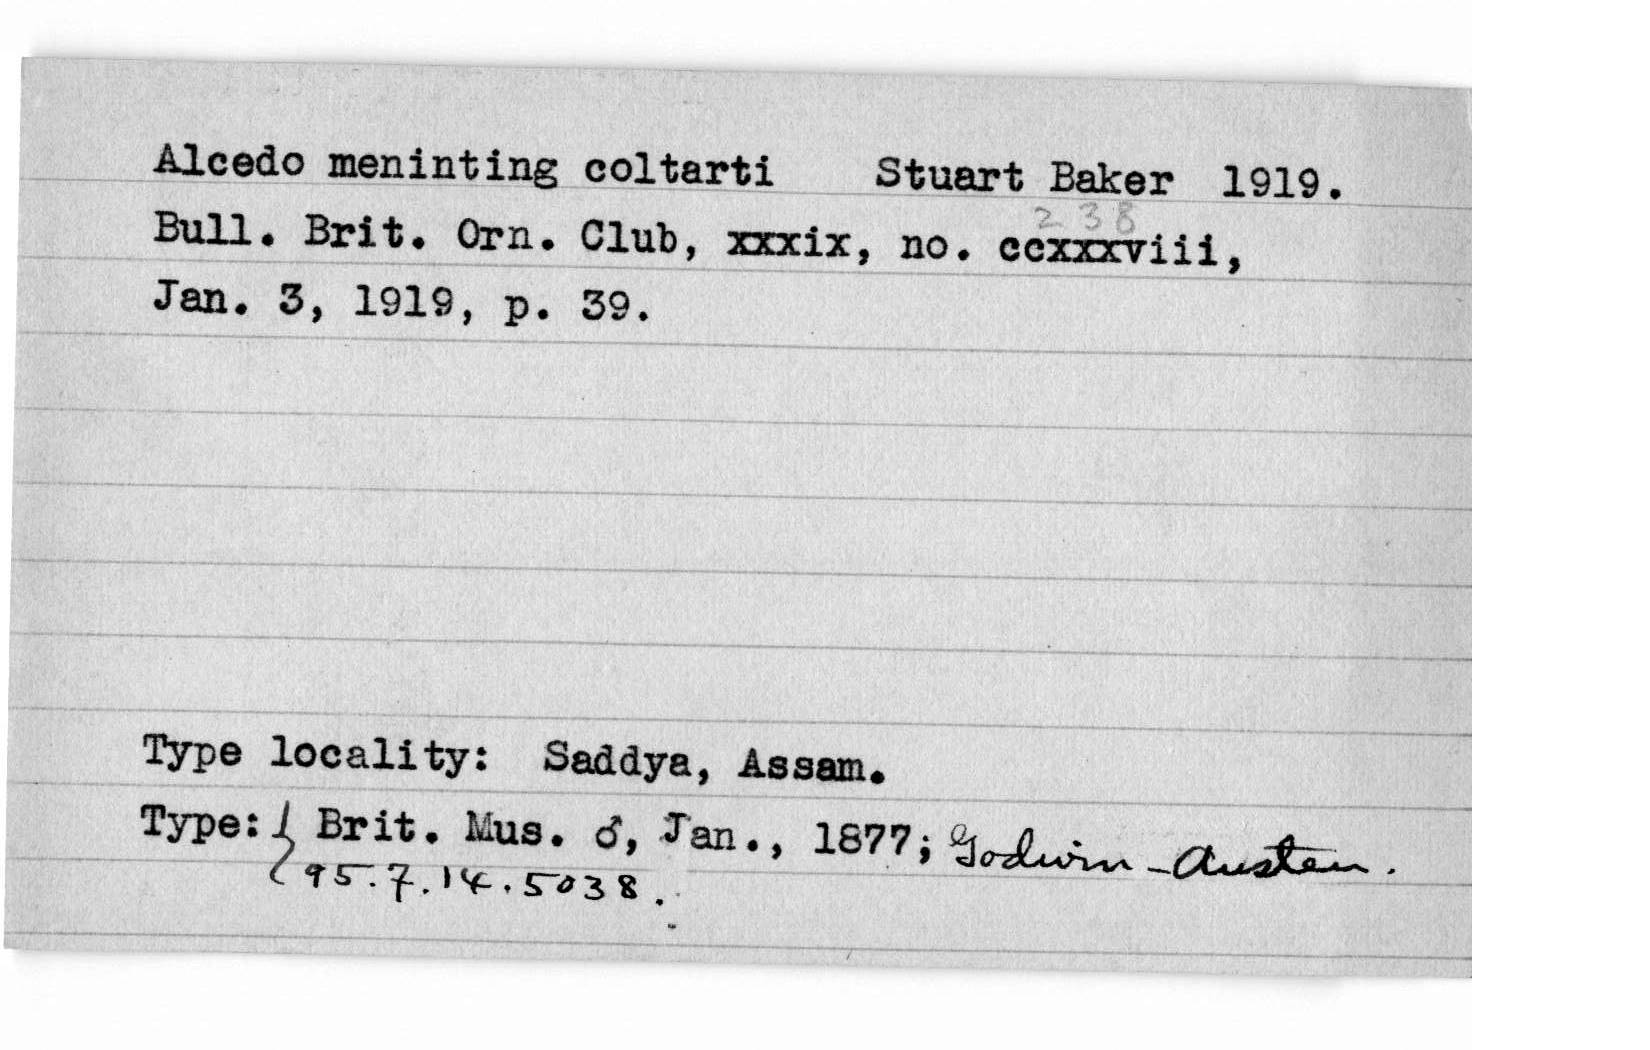 Alcedo meninting coltarti Stuart Baker 1919.
238
Bull. Brit. Orn. Club, xxxix, no. ccxxxviii,
Jan. 3, 1919, p. 39.
Type locality: Saddya, Assam.
Type: { Brit. Mus. ♂, Jan., 1877; Godwin-Austen.
95.7.14.5038.